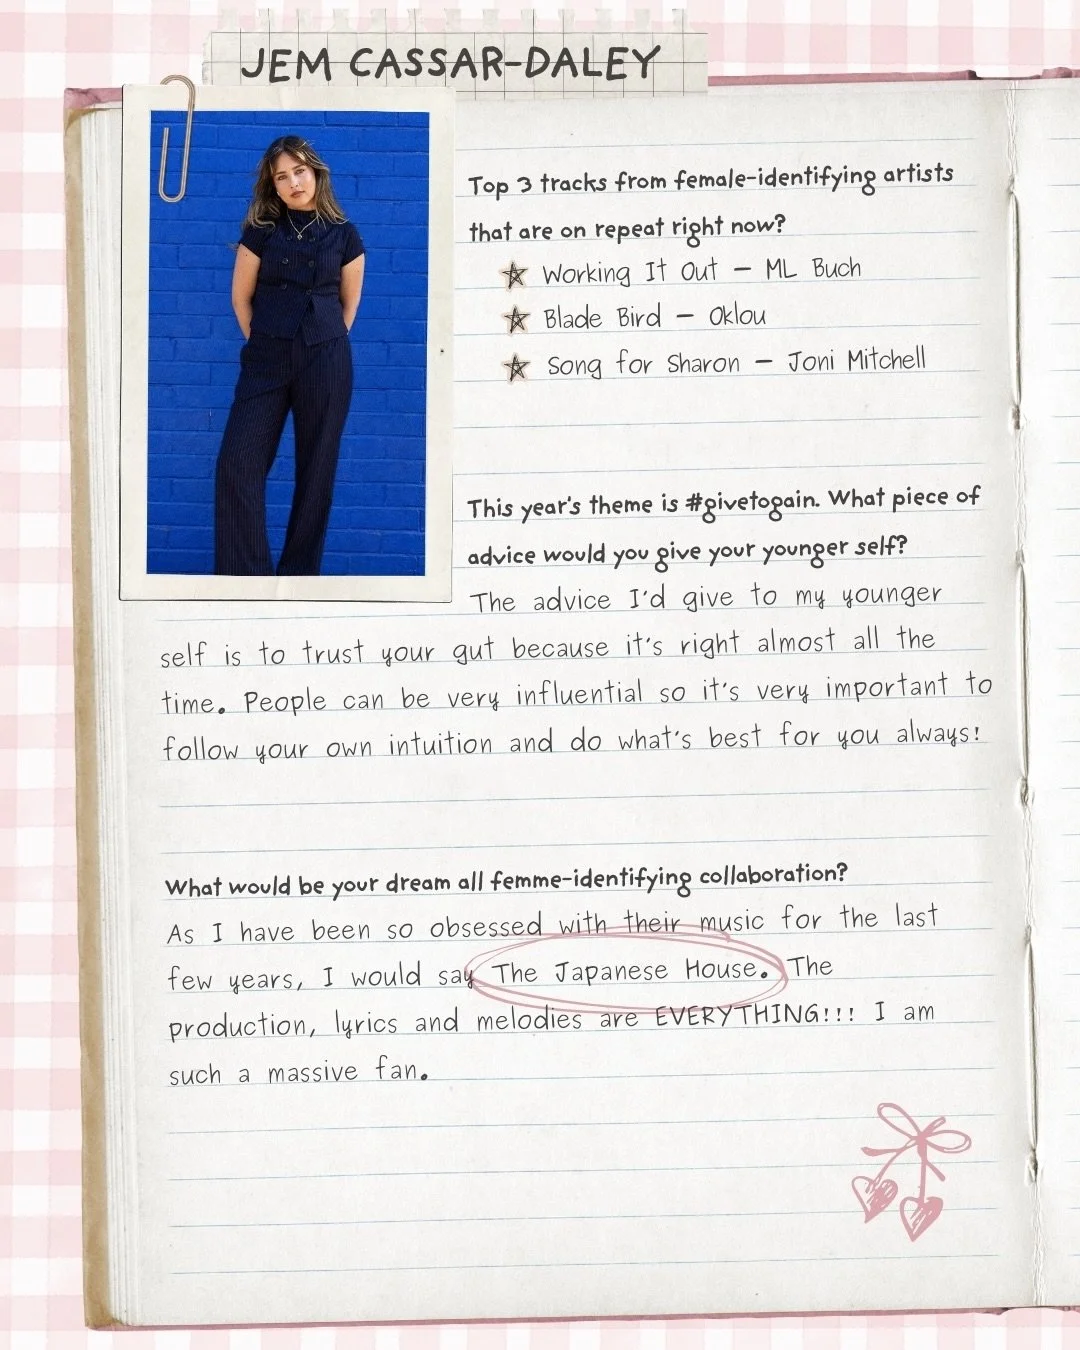 JEM CASSAR-DALEY
Top 3 tracks from female-identifying artists
that are on repeat right now?
Working It Out – ML Buch
Blade Bird – Oklou
Song for Sharon – Joni Mitchell
This year's theme is #givetogain. What piece of
advice would you give your younger self?
The advice I'd give to my younger
self is to trust your gut because it's right almost all the
time. People can be very influential so it's very important to
follow your own intuition and do what's best for you always!
What would be your dream all femme-identifying collaboration?
As I have been so obsessed with their music for the last
few years, I would say The Japanese House. The
production, lyrics and melodies are EVERYTHING!!! I am
such a massive fan.